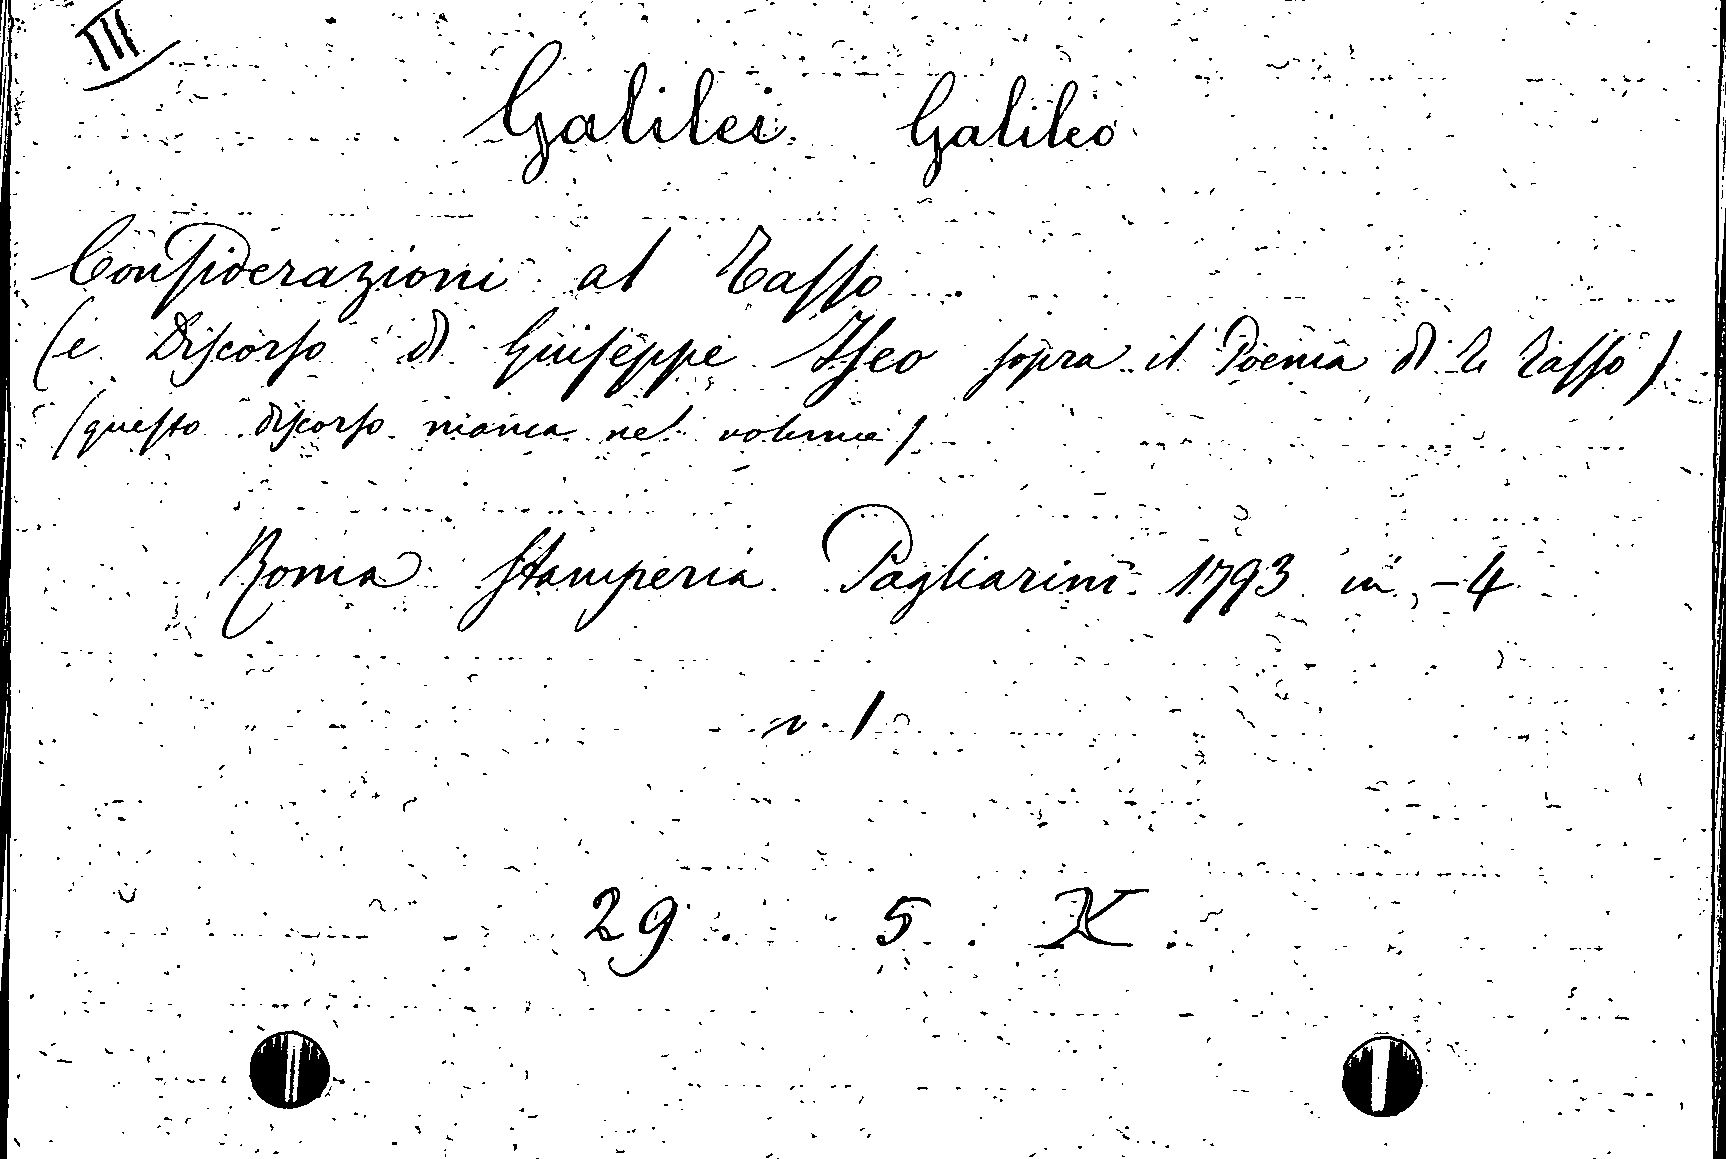 III
Galilei Galileo
Considerazioni al Tasso
(e Discorso di Giuseppe Iseo sopra il Poema di T. Tasso)
(questo discorso manca nel volume)
Roma Stamperia Pagliarini 1793 in -4
v. 1
29. 5. X.